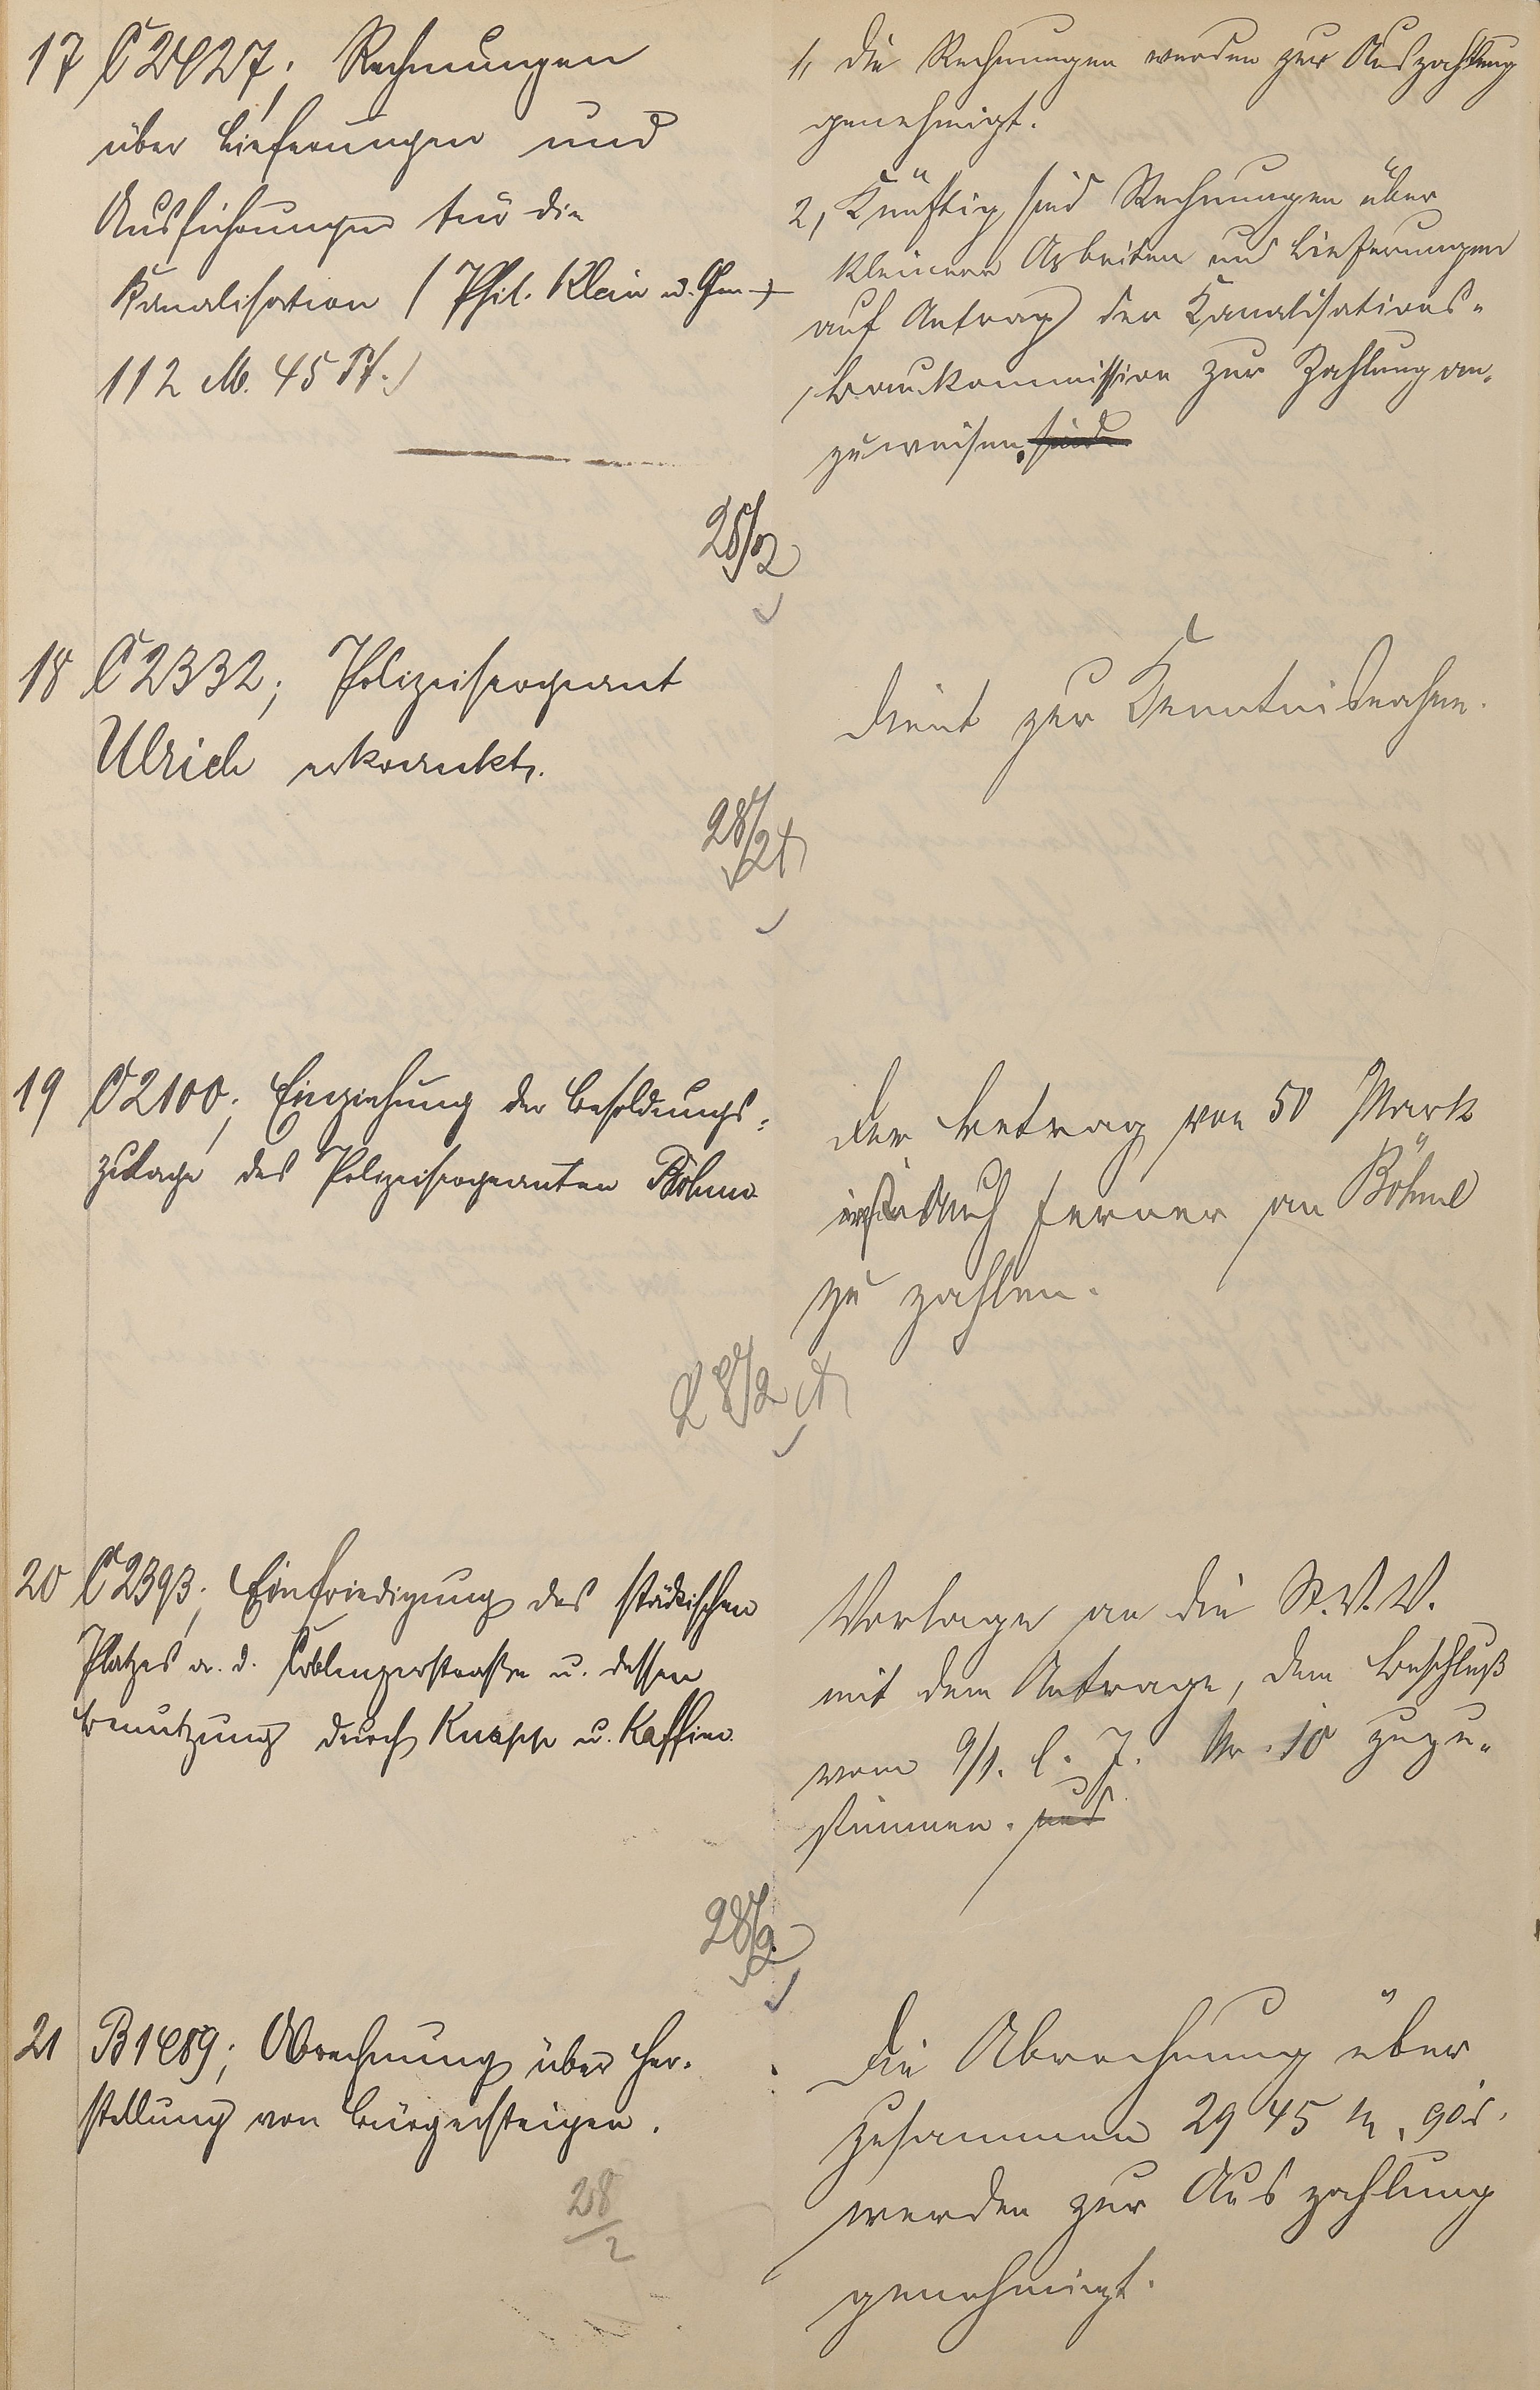 17 C 2427; Rechnungen
über Lieferungen und
Ausführungen für die
Kanalisation (Phil. Klein u. Gen.
112 M. 45 Pf.)
1, Die Rechnungen werden zur Auszahlung
genehmigt.
2, Künftig sind Rechnungen über
kleinere Arbeiten und Lieferungen
auf Antrag der Kanalisations-
baukommission zur Zahlung an-
zuweisen. sind
28/2
18 C 2332; Polizeisergeant
Ulrich erkrankt.
Dient zur Kenntnisnahme.
28/2
19 C 2100; Einziehung der Besoldungs-
zulage des Polizeisergeanten Böhme
Der Betrag von 50 Mark
ist auch ferner an Böhme
zu zahlen.
28/2
20 C 2393; Einfriedigung des städtischen
Platzes a. d. Coblenzerstraße u. dessen
Benutzung durch Knapp u. Kaffine.
Vorlage an die St. V. V.
mit dem Antrage, dem Beschluß
vom 9/1. l. J. Nr. 10 zuzu-
stimmen. und
28/2
21 B 1489; Abrechnung über Her-
stellung von Bürgersteigen.
Die Abrechnung über
zusammen 2945 M. 90 d.
werden zur Auszahlung
genehmigt.
28/2